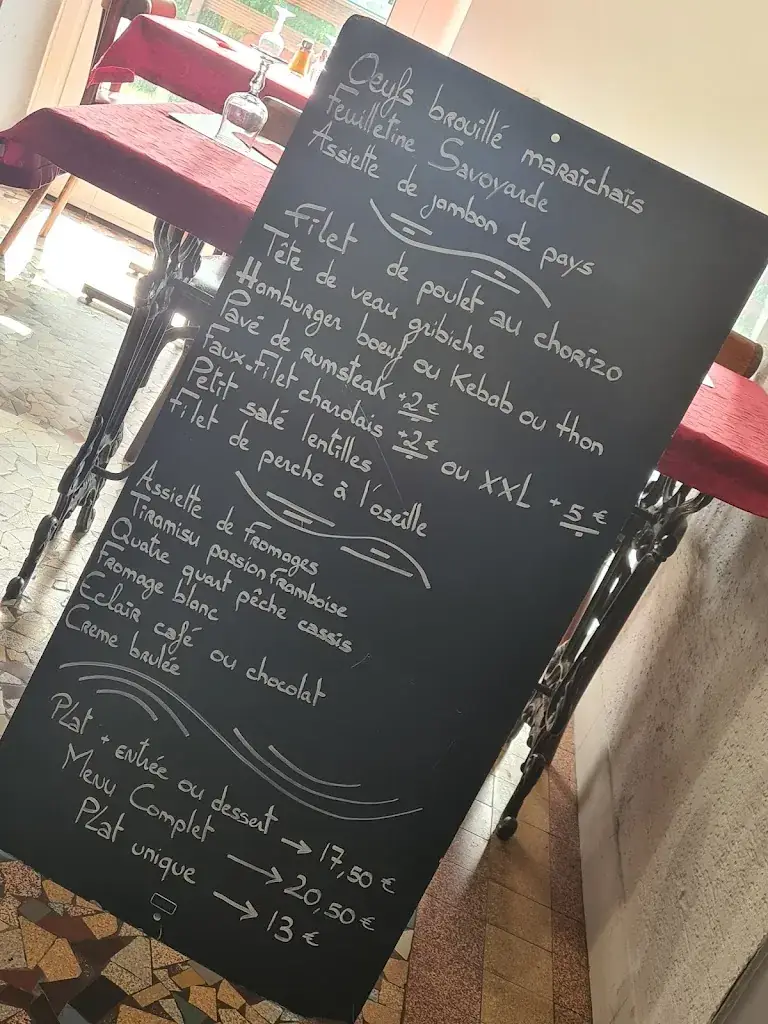 Oeufs brouillé maraîchais
Feuilletine Savoyarde
Assiette de jambon de pays
Filet de poulet au chorizo
Tête de veau gribiche
Hamburger boeuf ou Kebab ou thon
Pavé de rumsteak +2 €
Faux-Filet charolais +2 € ou XXL +5 €
Petit salé lentilles
Filet de perche à l'oseille
Assiette de fromages
Tiramisu passion framboise
Quatre quart pêche cassis
Fromage blanc
Eclair café ou chocolat
Creme brulée
Plat + entrée ou dessert → 17,50 €
Menu Complet → 20,50 €
Plat unique → 13 €